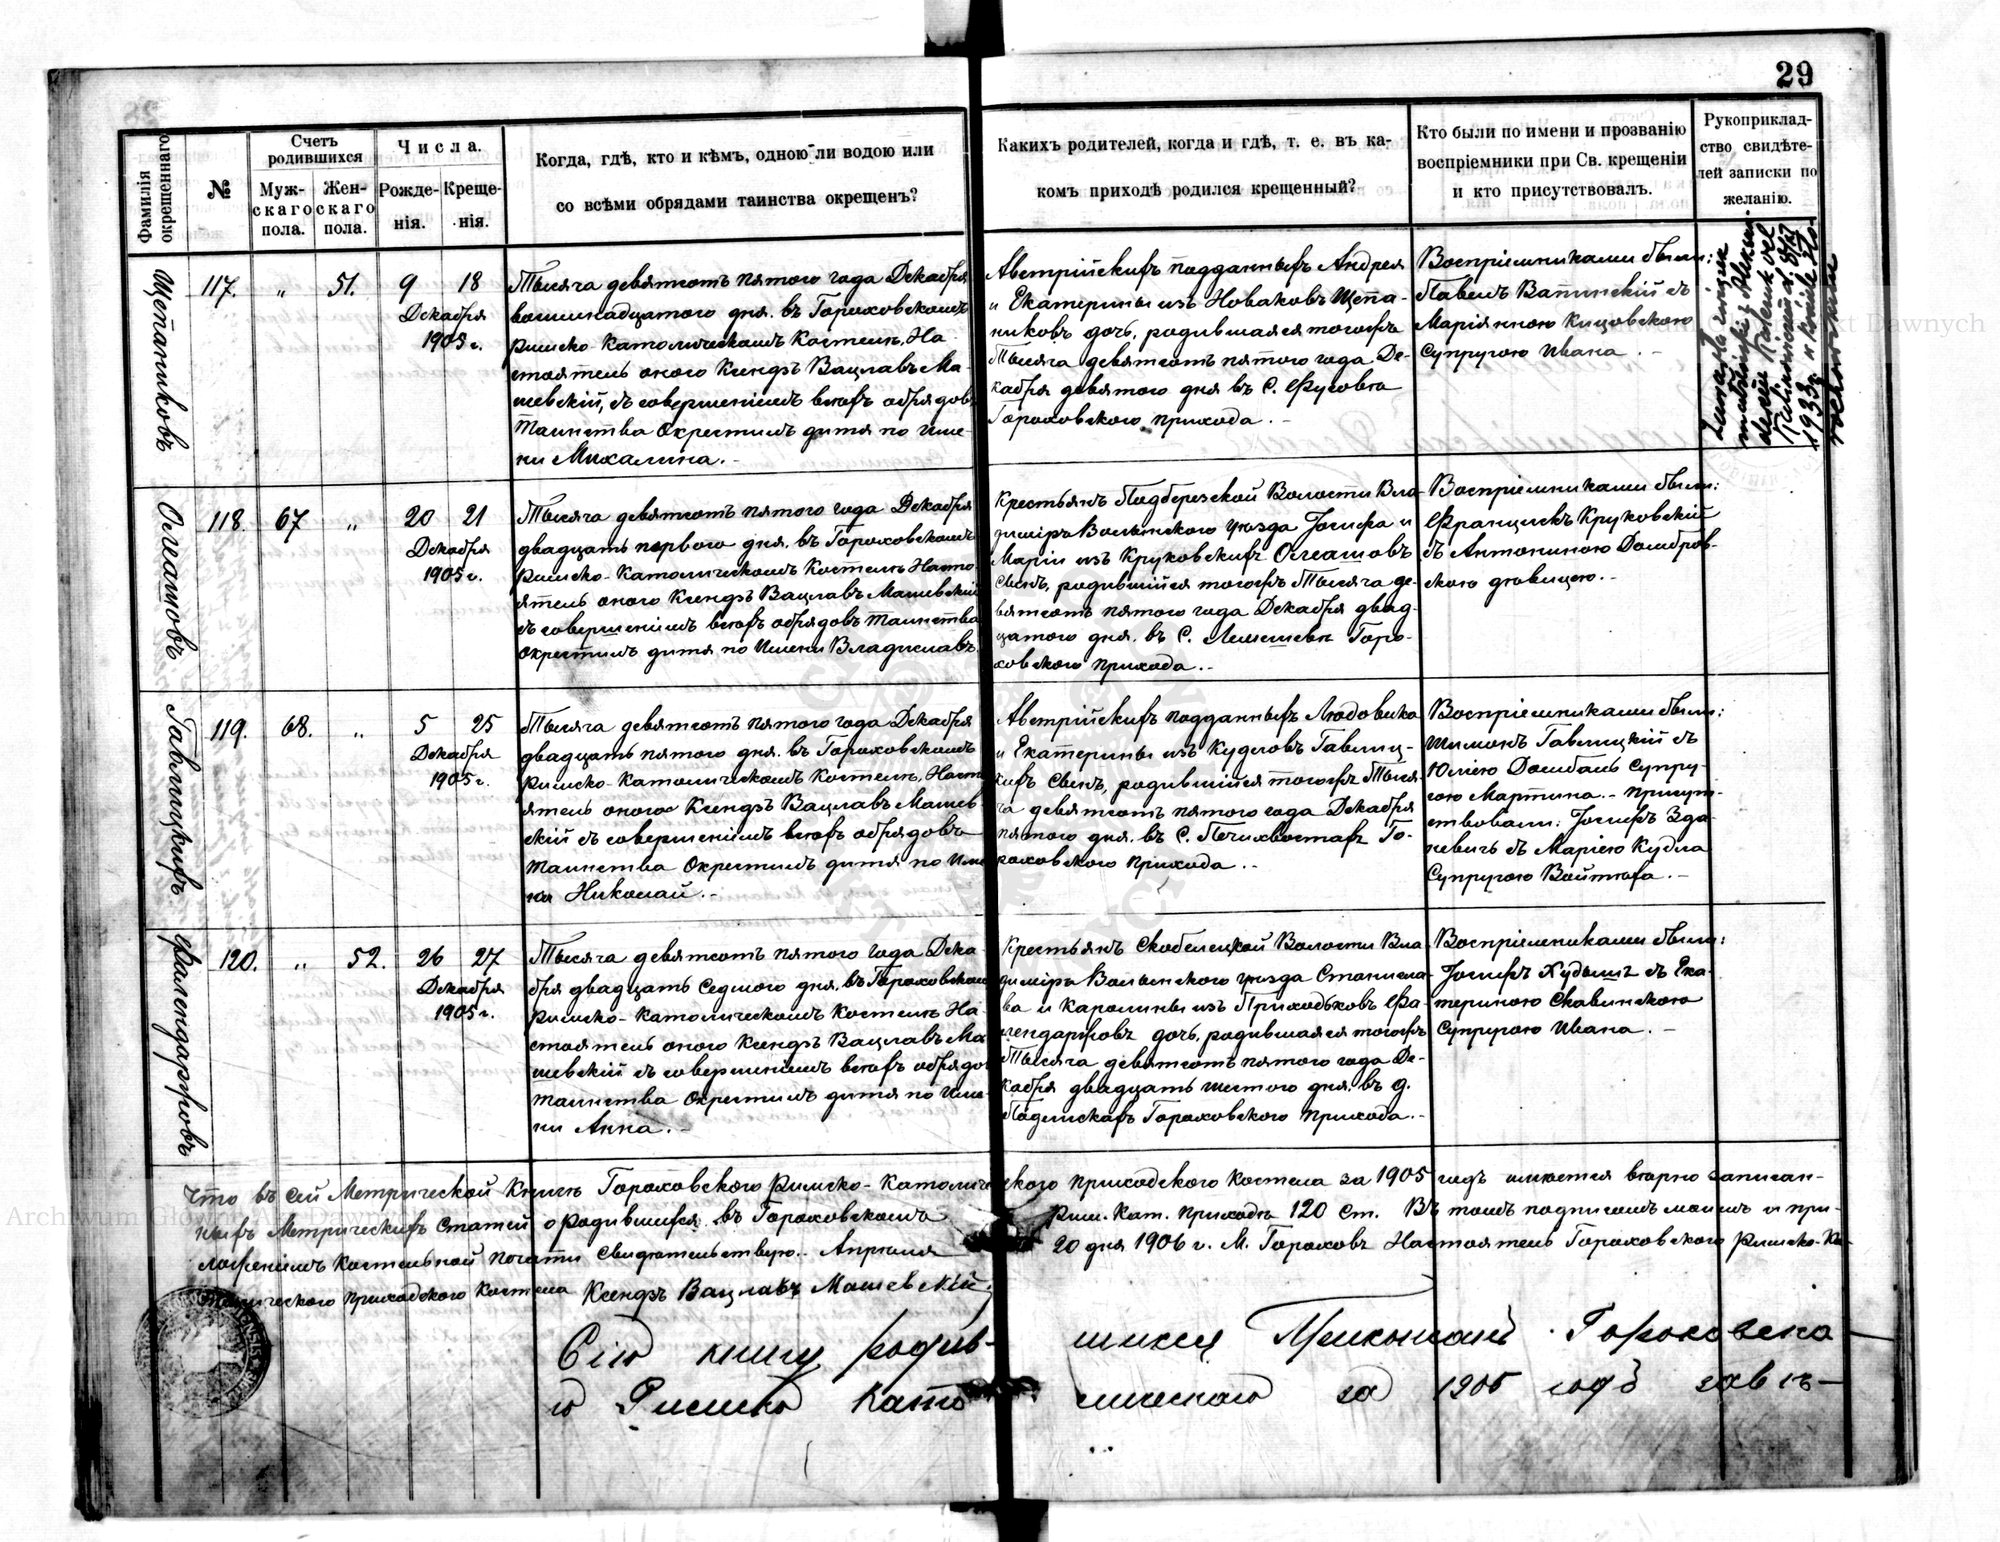 29
Фамилія окрещеннаго.
№
Счетъ родившихся
Мужскаго пола.
Женскаго пола.
Числа.
Рожденія.
Крещенія.
Когда, гдѣ, кто и кѣмъ, одною ли водою или
со всѣми обрядами таинства окрещенъ?
Какихъ родителей, когда и гдѣ, т. е. въ ка-
комъ приходѣ родился крещенный?
Кто были по имени и прозванію
воспріемники при Св. крещеніи
и кто присутствовалъ.
Рукоприклад-
ство свидѣте-
лей записки по
желанію.
Щепаниковъ
117.
„
51.
9
18
Декабря
1905 г.
Тысяча девятсотъ пятого года Декабря
восмнадцатого дня въ Гороховскомъ
Римско-Католическомъ Костелѣ, На-
стоятель оного Ксендзъ Вацлавъ Ма-
шевскій, съ совершеніемъ всѣхъ обрядовъ
Таинства Окрестилъ дитя по Име-
ни Михалина.-
Австрійскихъ подданныхъ Андрея
и Екатерины изъ Новаковъ Щепа-
никовъ дочь, родившаяся тогожъ
Тысяча девятсотъ пятого года Де-
кабря девятого дня въ С.
Гороховского прихода.-
Воспріемниками были:
Павелъ Вапинскій съ
Маріянною Кицовскою
Супругою Ивана.-
Олеатовъ
118
67
„
20
21
Декабря
1905 г.
Тысяча девятсотъ пятого года Декабря
двадцать первого дня въ Гороховскомъ
Римско-Католическомъ Костелѣ Насто-
ятель оного Ксендзъ Вацлавъ Машевскій
съ совершеніемъ всѣхъ обрядовъ Таинства
Окрестилъ дитя по Имени Владиславъ
Крестьянъ Подберезской Волости Вла-
диміръ Волынского уѣзда Іосифа и
Маріи изъ Круковскихъ
Сынъ, родившійся тогожъ Тысяча де-
вятсотъ пятого года Декабря двад-
цатого дня въ С. Лемешевѣ Горо-
ховского прихода.-
Воспріемниками были:
Францискъ Круковскій
съ Антониною Домбров-
скою дѣвицею.-
Гавлицкихъ
119.
68.
„
5
25
Декабря
1905 г.
Тысяча девятсотъ пятого года Декабря
двадцать пятого дня въ Гороховскомъ
Римско-Католическомъ Костелѣ, Насто-
ятель оного Ксендзъ Вацлавъ Машев-
скій съ совершеніемъ всѣхъ обрядовъ
Таинства Окрестилъ дитя по Име-
ни Николай.-
Австрійскихъ подданныхъ Людовика
и Екатерины изъ Кудловъ Гавлиц-
кихъ Сынъ, родившійся тогожъ Тыся-
ча девятсотъ пятого года Декабря
пятого дня въ С. Печихвостахъ Го-
роховского прихода.-
Воспріемниками были:
Шимонъ Гавлицкій съ
Юліею Домбаль Супру-
гою Мартина.- Присут-
ствовали: Іосифъ Зда-
невичъ съ Маріею Кудла
Супругою Войтѣха.-
Фалендаржовъ
120.
„
52.
26
27
Декабря
1905 г.
Тысяча девятсотъ пятого года Дека-
бря двадцать Седмого дня въ Гороховском
Римско-Католическомъ Костелѣ На-
стоятель оного Ксендзъ Вацлавъ Ма-
шевскій съ совершеніемъ всѣхъ обрядо
Таинства Окрестилъ дитя по Име-
ни Анна.-
Крестьянъ Скобелецкой Волости Вла-
диміръ Волынского уѣзда Станисла-
ва и Каролины изъ Приходьковъ Фа-
лендаржовъ дочь, родившаяся тогожъ
Тысяча девятсотъ пятого года Де-
кабря двадцать шестого дня въ
Гороховского прихода.-
Воспріемниками были:
Іосифъ съ Ека-
териною Скавинскою
Супругою Ивана.-
Что въ сей Метрической Книгѣ Гороховского Римско-Католического приходского Костела за 1905 годъ имѣется вѣрно записан-
ныхъ Метрическихъ Статей о родившихся въ Гороховскомъ Рим. Кат. приходѣ 120 ст. Въ томъ подписомъ моимъ и при-
ложеніемъ Костельной печати Свидѣтельствую. Апрѣля 20 дня 1906 г. М. Гороховъ Настоятель Гороховского Римско-Ка-
толического приходского Костела Ксендзъ Вацлавъ Машевскій.
Сію книгу родив- шихся Гороховска
го Римско Като лическаго за 1905 годъ